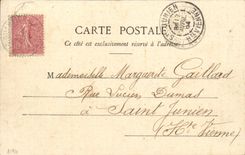 CARTE POSTALE
Ce côté est exclusivement réservé à l'adresse
Mademoiselle Marguerite Gaillard
Rue Lucien Dumas
à Saint Junien
(Hte Vienne)